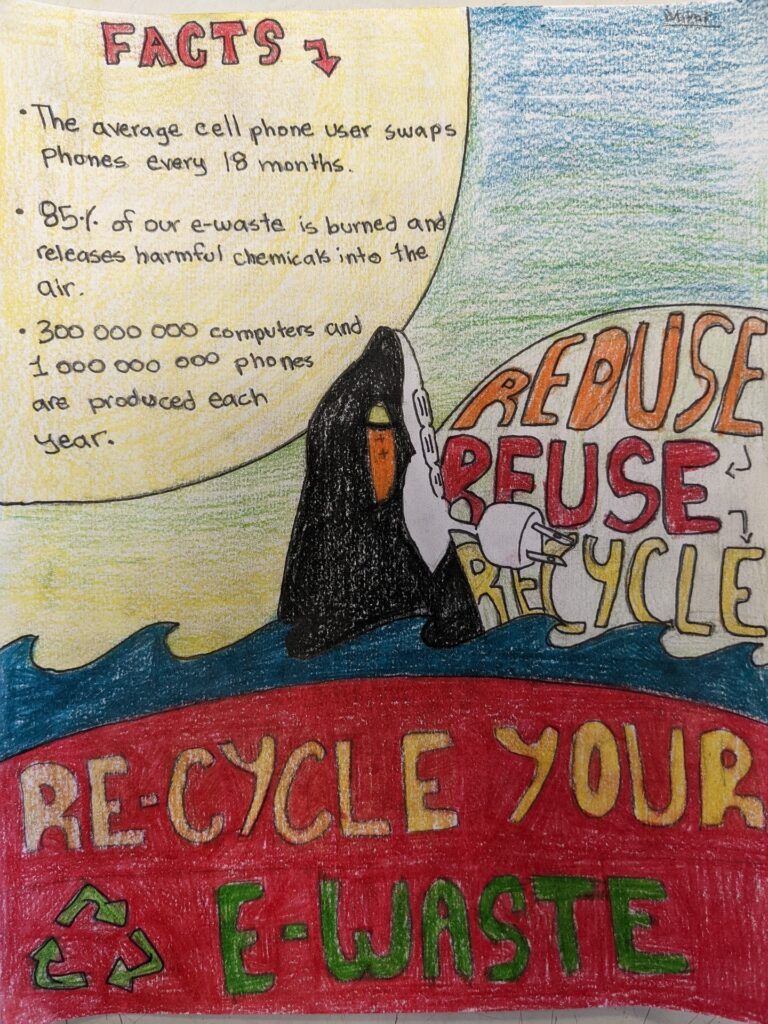 FACTS
• The average cell phone user swaps
Phones every 18 months.
• 85% of our e-waste is burned and
releases harmful chemicals into the
air.
• 300 000 000 computers and
1 000 000 000 phones
are produced each
year.
REDUSE
REUSE
RECYCLE
RE-CYCLE YOUR
E-WASTE